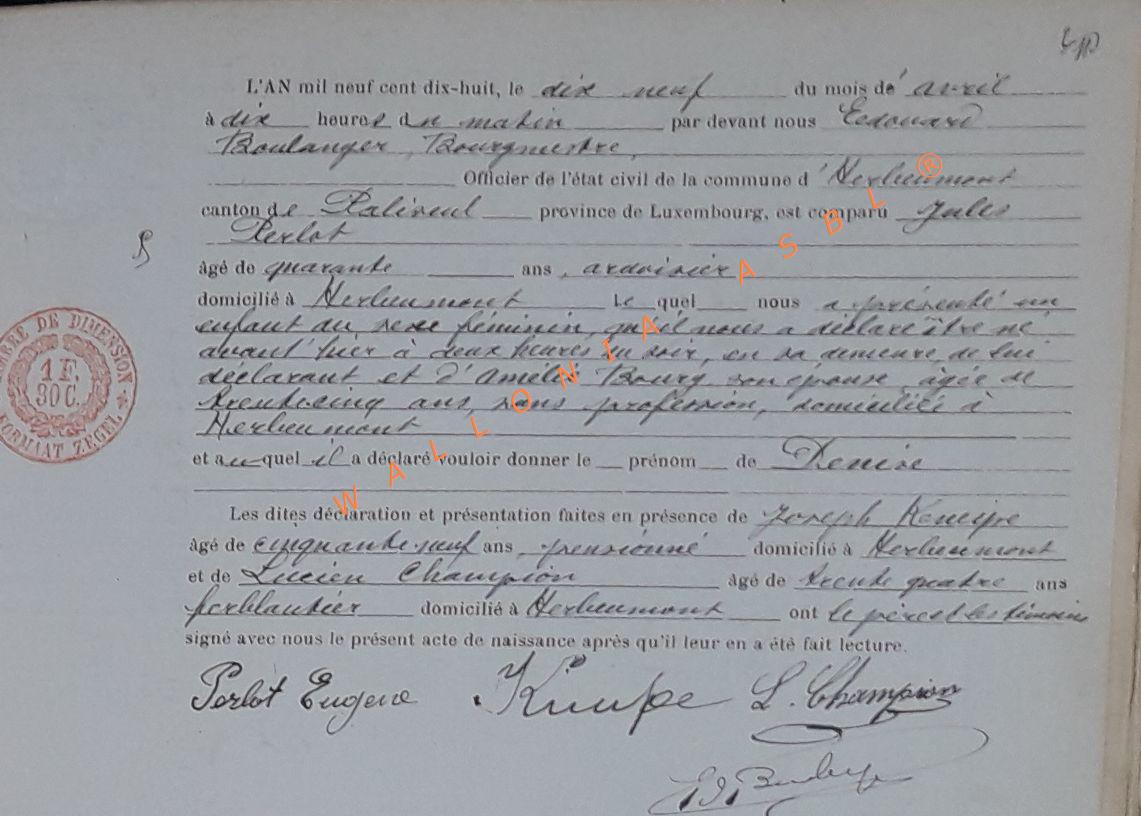 L'AN mil neuf cent dix-huit, le dix neuf du mois de avril
à dix heures du matin par devant nous Edouard
Boulanger, Bourgmestre,
Officier de l'état civil de la commune d'Herbeumont
canton de Paliseul province de Luxembourg, est comparu Jules
Perlot
âgé de quarante ans, ardoisier
domicilié à Herbeumont Le quel nous a présenté un
enfant du sexe féminin, qu'il nous a déclaré être né
avant hier à deux heures du soir, en sa demeure de lui
déclarant et d'Amélie Bourg son épouse, âgée de
trente cinq ans, sans profession, domiciliée à
Herbeumont
et auquel il a déclaré vouloir donner le prénom de Denise
Les dites déclaration et présentation faites en présence de Joseph
âgé de cinquante-neuf ans, pensionné domicilié à Herbeumont
et de Lucien Champion âgé de trente quatre ans
ferblantier domicilié à Herbeumont ont le père et les témoins
signé avec nous le présent acte de naissance après qu'il leur en a été fait lecture.
Perlot Eugene L. Champion
TIMBRE DE DIMENSION
1 F.
30 C.
FORMAAT ZEGEL
WALLONIA ASBL ®